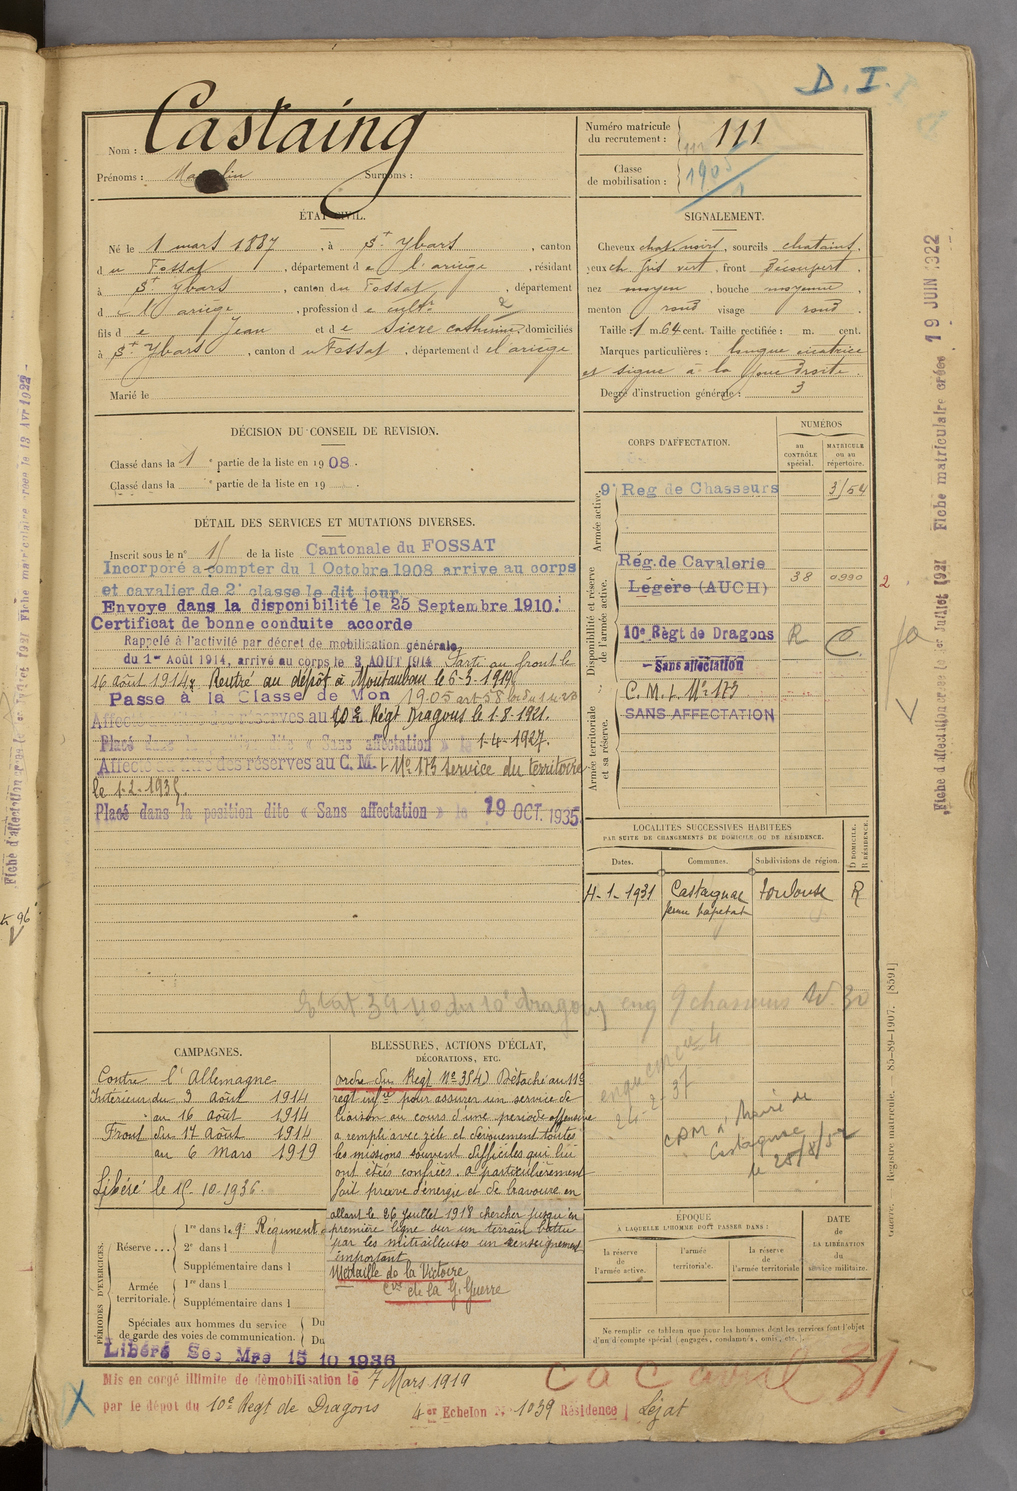 D. I.
Nom : Castaing
Prénoms : Surnoms :
Numéro matricule du recrutement : 111
Classe de mobilisation : 1905
ÉTAT CIVIL.
Né le 1 mars 1887, à St Ybars, canton
du Fossat, département de l'ariège, résidant
à St Ybars, canton du Fossat, département
de l'ariège, profession de cultr
fils de Jean et de Sicre Catherine, domiciliés
à St Ybars, canton du Fossat, département de l'ariège
Marié le
SIGNALEMENT.
Cheveux chat. noirs, sourcils chatains,
yeux ch. gris vert, front Découvert,
nez moyen, bouche moyenne,
menton rond visage rond.
Taille 1 m. 64 cent. Taille rectifiée : m. cent.
Marques particulières : longue cicatrice
et signe à la joue droite.
Degré d'instruction générale : 3
DÉCISION DU CONSEIL DE REVISION.
Classé dans la 1e partie de la liste en 1908.
Classé dans la e partie de la liste en 19 .
DÉTAIL DES SERVICES ET MUTATIONS DIVERSES.
Inscrit sous le n° 15 de la liste Cantonale du FOSSAT
Incorporé a compter du 1 Octobre 1908 arrive au corps
et cavalier de 2e classe le dit jour
Envoye dans la disponibilité le 25 Septembre 1910.
Certificat de bonne conduite accorde
Rappelé à l'activité par décret de mobilisation générale
du 1er Août 1914, arrivé au corps le 3 AOUT 1914 Parti au front le
16 août 1914. Rentré au dépôt à Montauban le 6-3-1919
Passe à la Classe de Mon 1905 art 58
Affecté au titre des réserves au 10e Régt Dragons le 1-8-1921.
Placé dans la position dite « Sans affectation » le 1-4-1927.
Affecté au titre des réserves au C.M.t No 173 service du territoire
le 1-2-1935.
Placé dans la position dite « Sans affectation » le 19 OCT. 1935
CORPS D'AFFECTATION.
NUMÉROS
au CONTRÔLE spécial.
MATRICULE ou au répertoire.
Armée active.
9e Reg de Chasseurs 3154
Disponibilité et réserve de l'armée active.
Rég. de Cavalerie
Légère (AUCH) 38 0990 2
10e Règt de Dragons R
Sans affectation
Armée territoriale et sa réserve.
C. M. t. No 173
SANS AFFECTATION
LOCALITÉS SUCCESSIVES HABITÉES
PAR SUITE DE CHANGEMENTS DE DOMICILE OU DE RÉSIDENCE.
Dates. Communes. Subdivisions de région. D DOMICILE. R RÉSIDENCE.
4-1-1931 Castagnac Toulouse R
Etat 39 du 10e dragons 9 chasseurs
24-2-37
Castagnac
le 28/8/52
CAMPAGNES.
Contre l'Allemagne
Intérieur du 3 Août 1914
au 16 Août 1914
Front du 17 Août 1914
au 6 Mars 1919
Libéré le 15.10.1936.
BLESSURES, ACTIONS D'ÉCLAT,
DÉCORATIONS, ETC.
ordre du Regt No 354) Détaché au 11e
regt infie pour assurer un service de
liaison au cours d'une periode offensive
a rempli avec zèle et dévouement toutes
les missions souvent difficiles qui lui
ont étés confiées. a particulièrement
fait preuve d'énergie et de bravoure en
allant le 26 Juillet 1918 chercher jusqu'en
première ligne sur un terrain battu
par les mitrailleuses un renseignement
important
Médaille de la Victoire
Cve de la G. Guerre
PÉRIODES D'EXERCICES.
Réserve... 1re dans le 9e Régiment
2e dans l
Supplémentaire dans l
Armée territoriale. 1re dans l
Supplémentaire dans l
Spéciales aux hommes du service de garde des voies de communication. Du
Du
Libéré Sce Mre 15 10 1936
ÉPOQUE
À LAQUELLE L'HOMME DOIT PASSER DANS :
la réserve de l'armée active.
l'armée territoriale.
la réserve de l'armée territoriale
DATE de LA LIBÉRATION du service militaire.
Ne remplir ce tableau que pour les hommes dont les services font l'objet
d'un décompte spécial (engagés, condamnés, omis, etc.
Mis en congé illimité de démobilisation le 7 Mars 1919
par le dépôt du 10e Regt de Dragons 4er Echelon No 1039 Résidence Lejat
c a c avril 31
Fiche d'affectation créée le 1er Juillet 1921 Fiche matriculaire créée 19 JUIN 1922
Guerre. Registre matricule. — 85-89-1907. [8591]
Fiche matriculaire créée le 13 Avr 1922